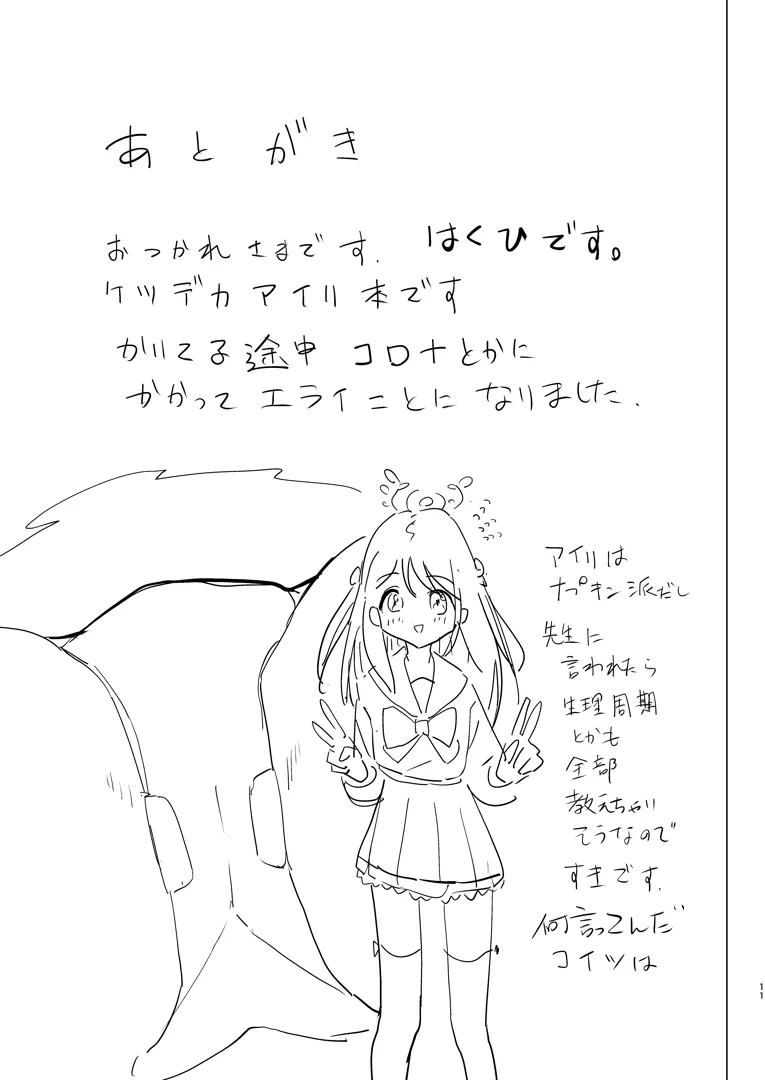 あとがき
おつかれさまです. はくひです。
ケツデカアイリ本です
かいてる途中 コロナとかに
かかって エライことに なりました.
アイリは
ナプキン派だし
先生に
言われたら
生理周期
とかも
全部
教えちゃい
そうなので
すきです.
何言ってんだ
コイツは
11